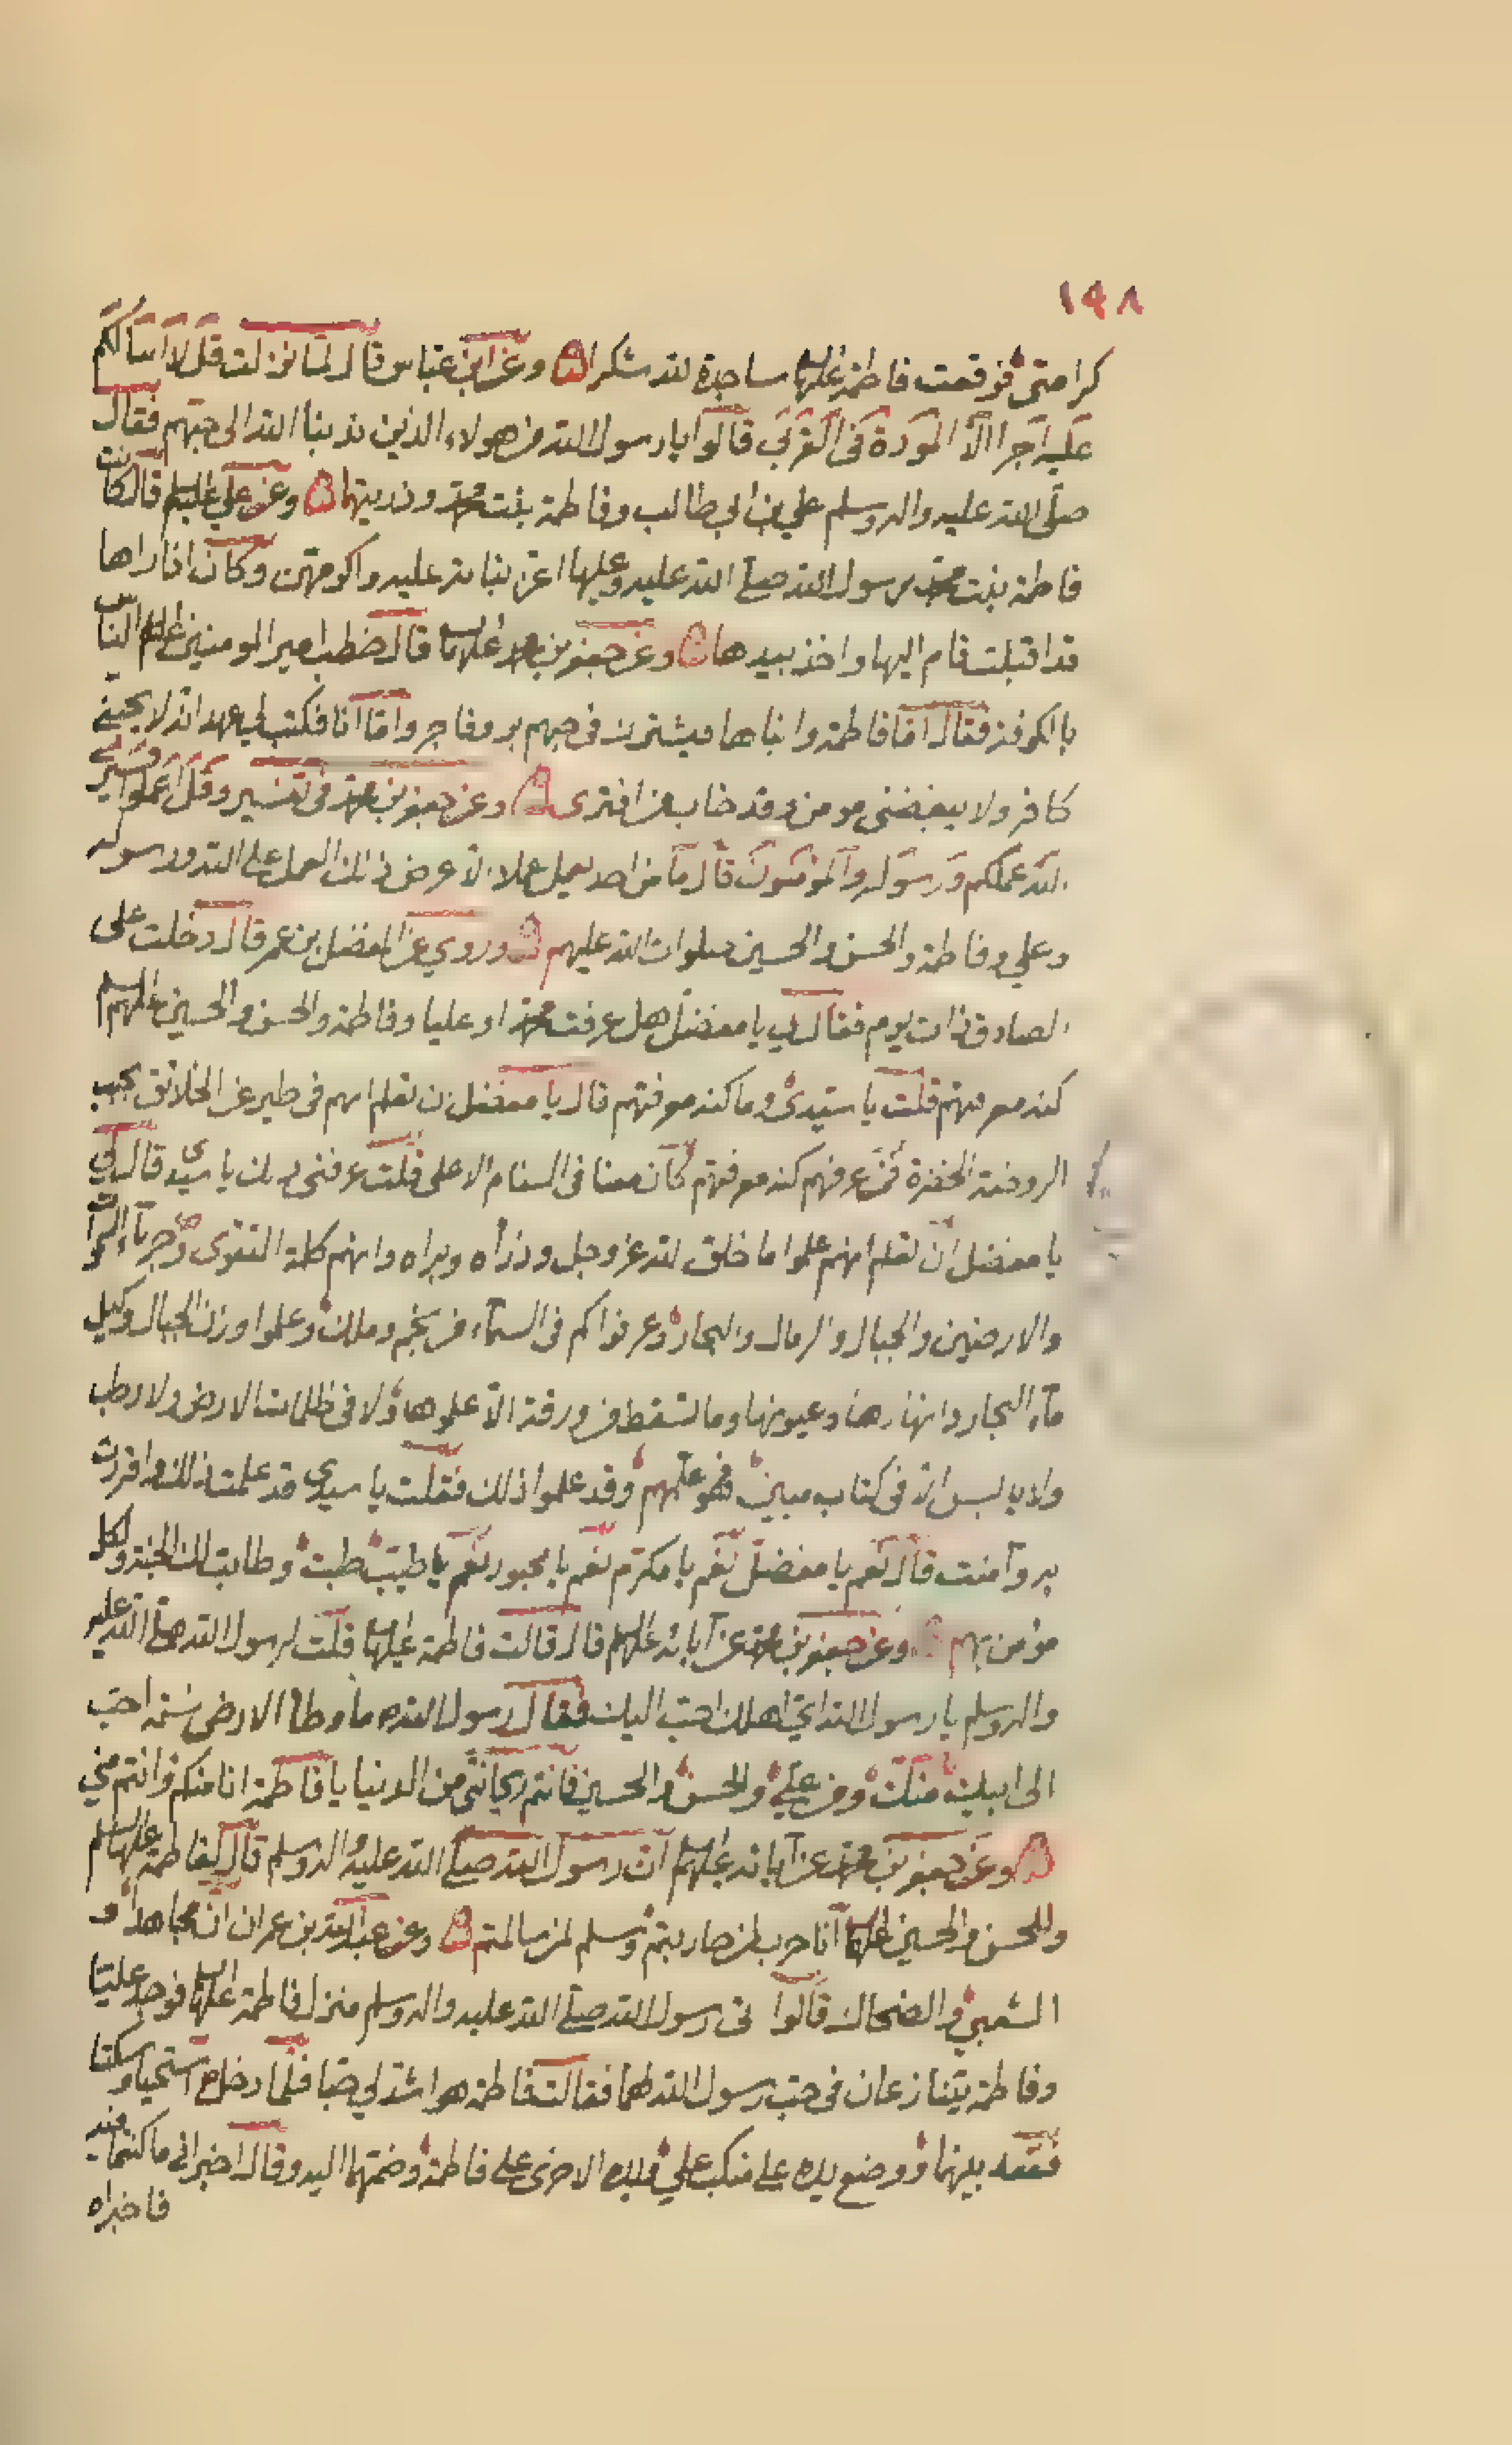 ١٩٨
كرامتي فوقعت فاطمة عليها السلام ساجدة لله شكرا وعن ابن عباس قال لما نزلت قل لا اسالكم
عليه اجرا الا المودة في القربى قالوا يا رسول الله من هولاء الذين ندبنا الله الى حبهم فقال
صلى الله عليه واله وسلم علي بن ابي طالب وفاطمة بنت محمد وذريتهما وعن علي عليه السلم قال كانت
فاطمة بنت محمد رسول الله صلى الله عليه وعليها اعز بناته عليه واكرمهن وكان اذا راها
قد اقبلت قام اليها واخذ بيدها وعن جعفر بن محمد عليهما السلام قال خطب امير المومنين عليه السلم الناس
بالكوفة فقال اما فاطمة وابناها فيشترك في حبهم بر وفاجر واما انا فكتب لي عهد انه لا يحبني
كافر ولا يبغضني مومن وقد خاب من افترى وعن جعفر بن محمد في تفسير وقل اعملوا فسيرى
الله عملكم ورسوله والمؤمنون قال ما من احد يعمل عملا الا عرض ذلك العمل على الله ورسوله
وعلي وفاطمة والحسن والحسين صلوات الله عليهم وروي عن المفضل بن عمر قال دخلت على
الصادق ذات يوم فقال لي يا مفضل هل عرفت محمدا وعليا وفاطمة والحسن والحسين عليهم السلم
كنه معرفتهم قلت يا سيدي وما كنه معرفتهم قال يا مفضل ان تعلم انهم في طير عن الخلائق بجنب
الروضة الخضرة فمن عرفهم كنه معرفتهم كان معنا في السنام الاعلى فقلت عرفني ذلك يا سيدي قال لي
يا مفضل ان تعلم انهم علموا ما خلق الله عز وجل وذراه وبراه وانهم كلمة التقوى السموات
والارضين والجبال والرمال والبحار وعرفوا كم في السماء من نجم وملك وعلموا وزن الجبال وكيل
ماء البحار وانهارها وعيونها وما تسقط من ورقة الا علموها ولا في ظلمات الارض ولا رطب
ولا يابس الا في كتاب مبين فهو علمهم وقد علموا ذلك فقلت يا سيدي قد علمت ذلك واقررت
به وآمنت قال نعم يا مفضل نعم يا مكرم نعم يا محبور نعم يا طيب طبت وطابت لك الجنة ولكل
مؤمن بهم وعن جعفر بن محمد عن آبائه عليهم السلم قال قالت فاطمة عليها السلام قلت لرسول الله صلى الله عليه
واله وسلم يا رسول الله اي اهلك احب اليك فقال رسول الله ما وطأ الارض نسمة احب
الى ابيك منك ومن علي والحسن والحسين فانتم ريحانتي من الدنيا يا فاطمة انا منكم وانتم مني
وعن جعفر بن محمد عن آبائه عليهم السلم ان رسول الله صلى الله عليه واله وسلم قال لفاطمة عليها السلم
وللحسن والحسين عليهما السلام انا حرب لمن حاربتم وسلم لمن سالمتم وعن عبد الله بن عمران ان مجاهدا و
الشعبي والضحاك قالوا اتى رسول الله صلى الله عليه واله وسلم منزل فاطمة عليها السلام فوجد عليا
وفاطمة يتنازعان في حب رسول الله لهما فقالت فاطمة هو اشد لي حبا فلما دخل استحيا وسكتا
فقعد بينهما ووضع يده على منكب علي ويده الاخرى على فاطمة وضمهما اليه وقال اخبراني ما كنتما فيه
فاخبراه